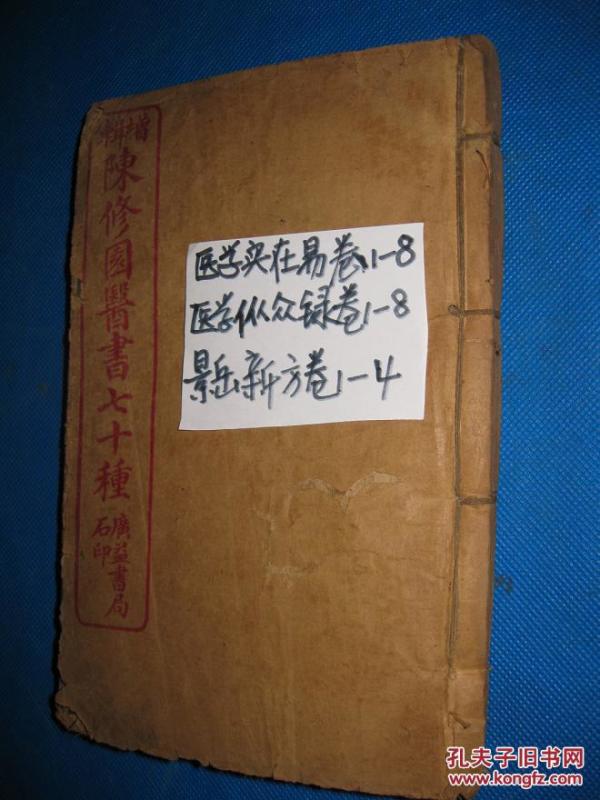 增輯
陳修園醫書七十種
廣益書局
石印
医学实在易卷1-8
医学从众録卷1-8
景岳新方卷1-4
孔夫子旧书网
www.kongfz.com